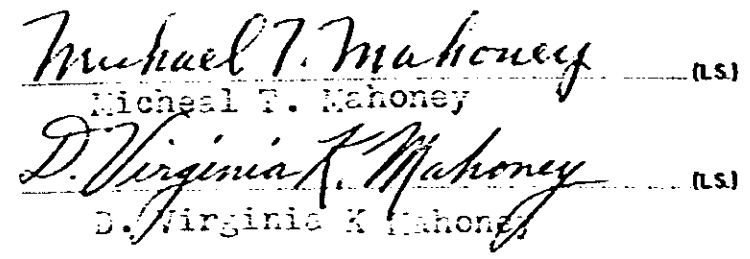 Michael T. Mahoney (L.S.)
Micheal T. Mahoney
D. Virginia K. Mahoney (L.S.)
D. Virginia K Mahoney